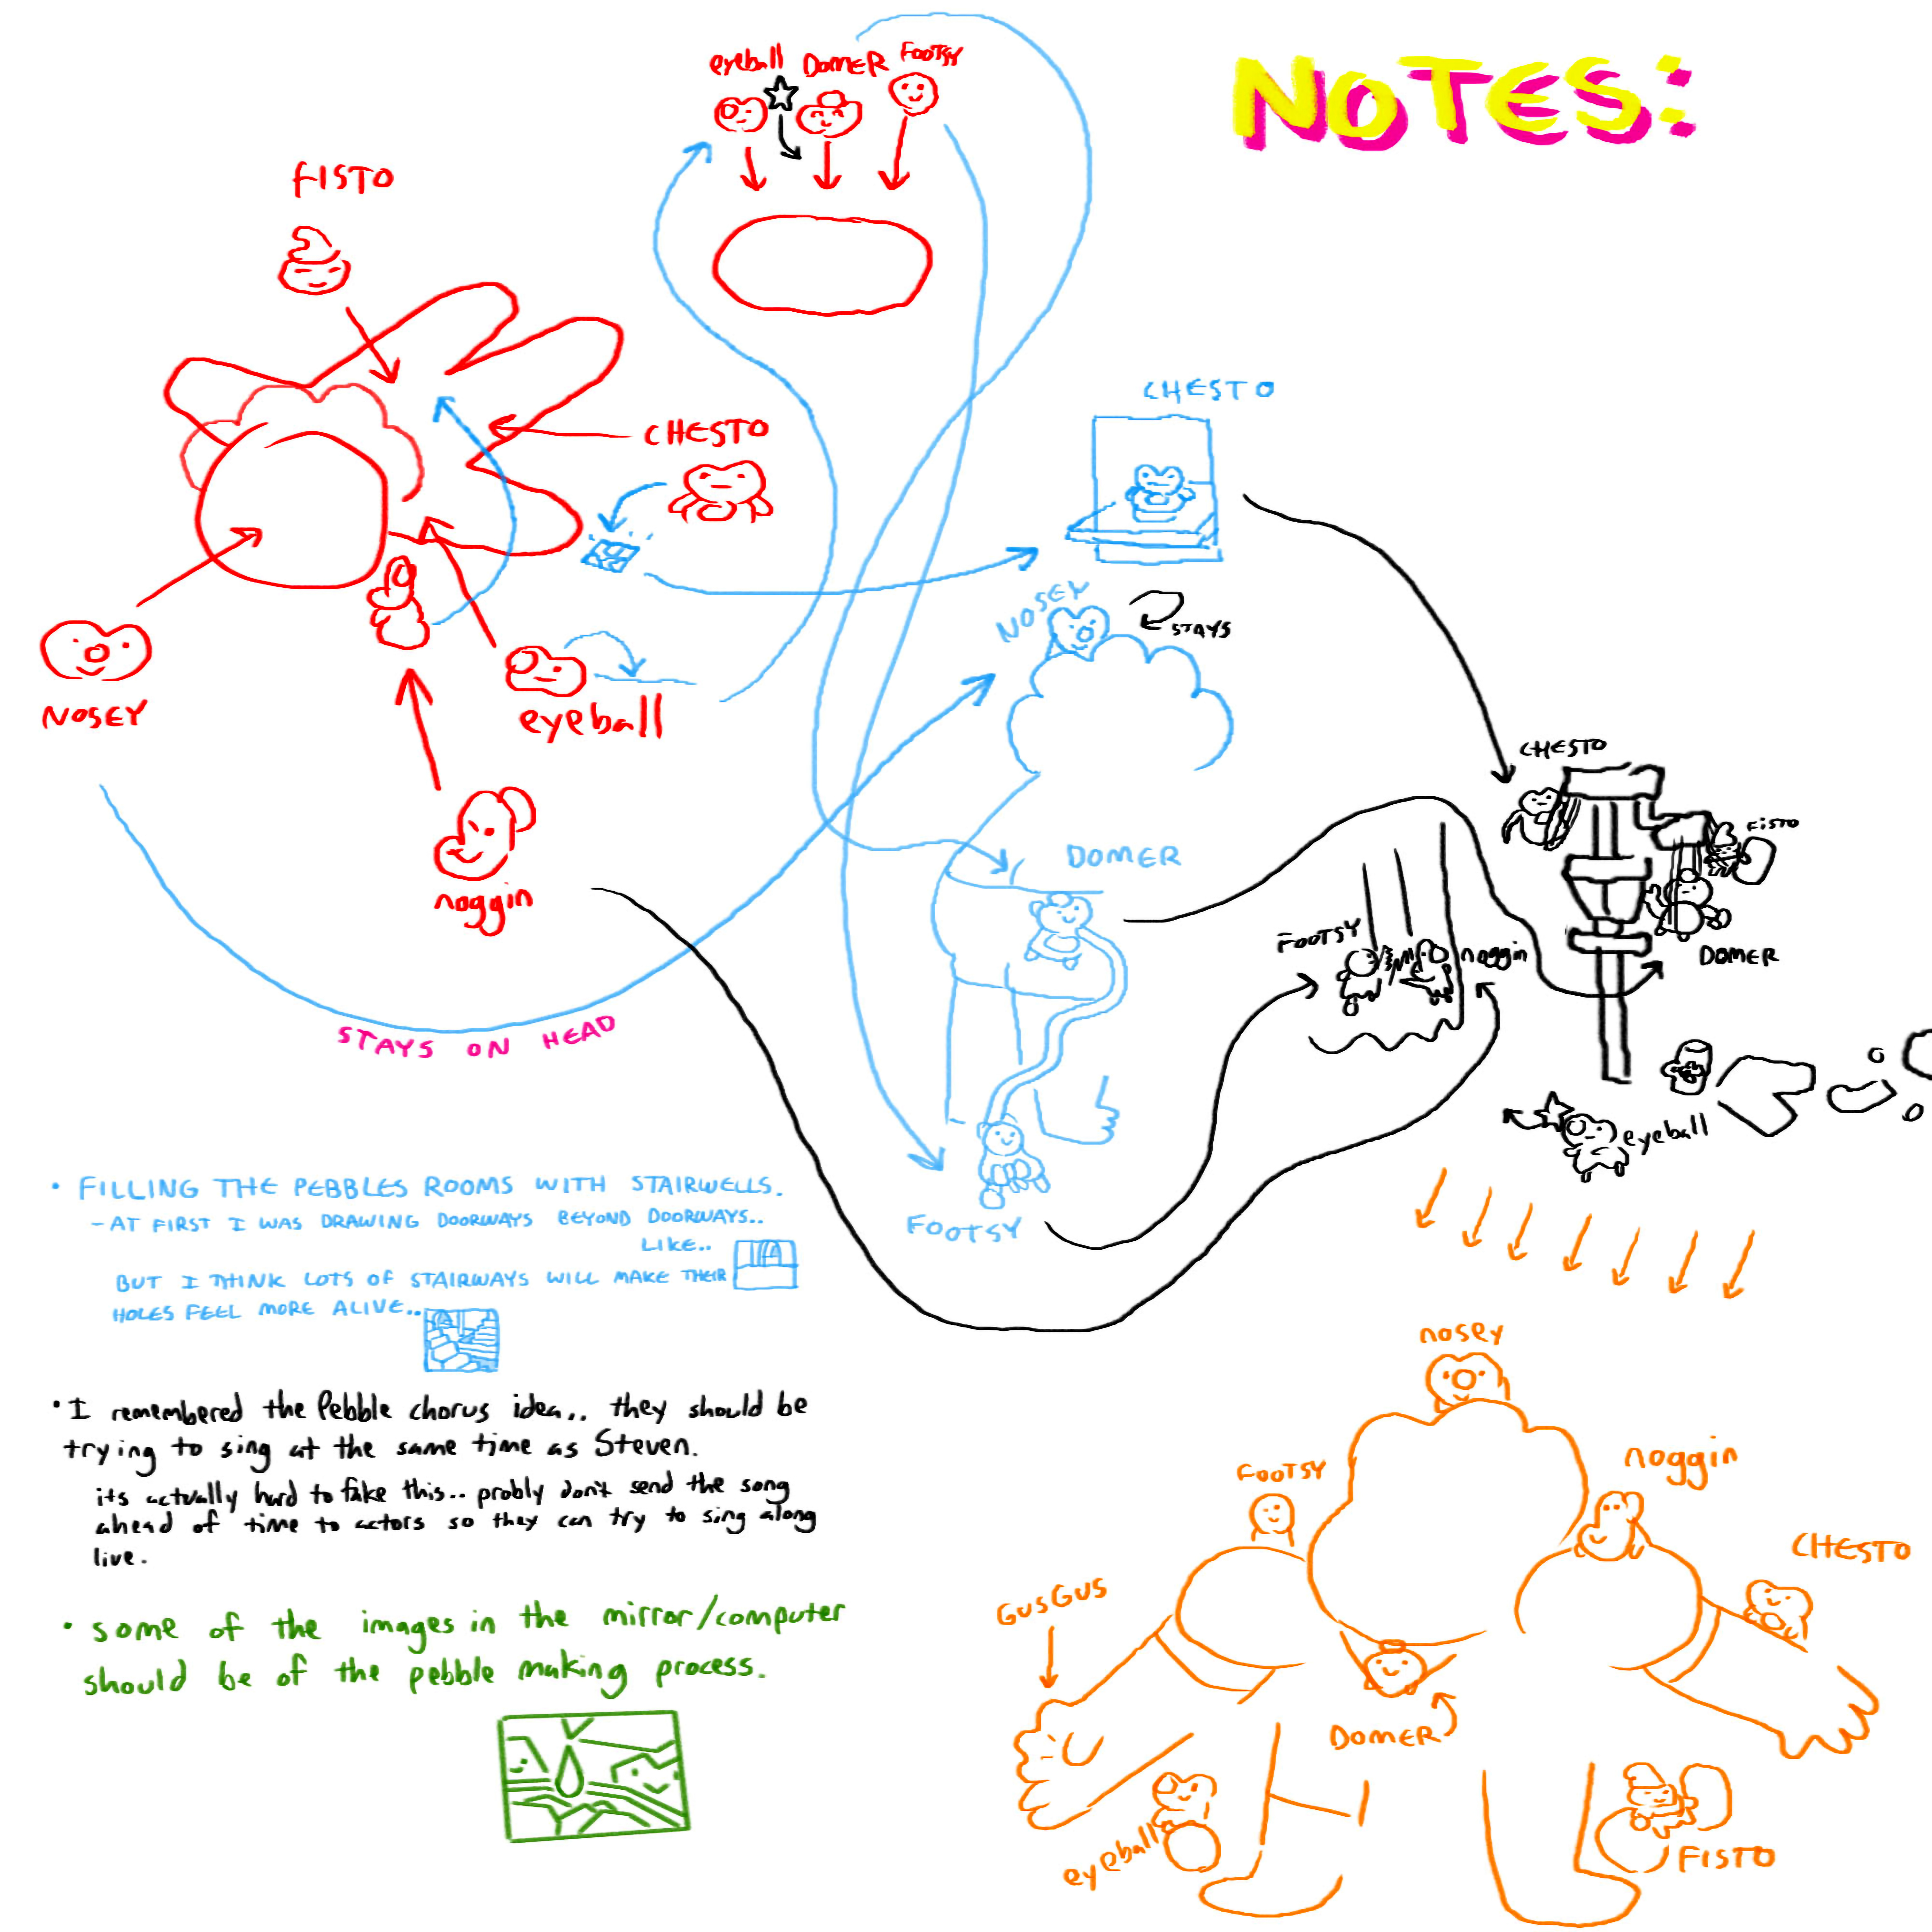 NOTES:
eyeball DOMER FOOTSY
FISTO
CHESTO
NOSEY
eyeball
noggin
STAYS ON HEAD
CHESTO
NOSEY
STAYS
DOMER
FOOTSY
CHESTO
FISTO
FOOTSY
noggin
DOMER
eyeball
• FILLING THE PEBBLES ROOMS WITH STAIRWELLS.
- AT FIRST I WAS DRAWING DOORWAYS BEYOND DOORWAYS..
LIKE..
BUT I THINK LOTS OF STAIRWAYS WILL MAKE THEIR
HOLES FEEL MORE ALIVE..
• I remembered the Pebble chorus idea.. they should be
trying to sing at the same time as Steven.
its actually hard to fake this.. probly don't send the song
ahead of time to actors so they can try to sing along
live.
• some of the images in the mirror/computer
should be of the pebble making process.
nosey
FOOTSY
noggin
CHESTO
GUSGUS
DOMER
eyeball
FISTO